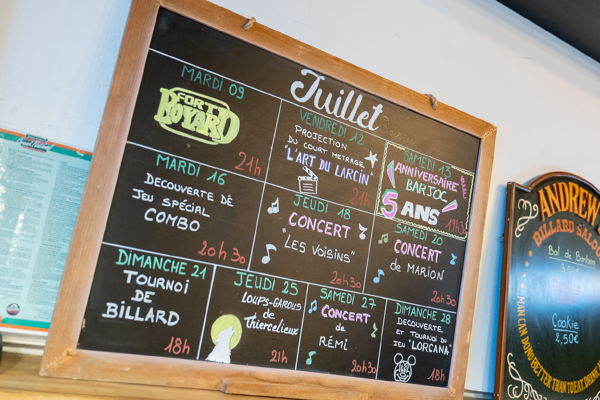 Juillet
MARDI 09
FORT
BOYARD
21h
VENDREDI 12
PROJECTION
DU COURT METRAGE
"L'ART DU LARCIN"
21h
SAMEDI 13
ANNIVERSAIRE
BARJOC
5 ANS
19h30
MARDI 16
DECOUVERTE DE
JEU SPÉCIAL
COMBO
20h30
JEUDI 18
CONCERT
"LES VOISINS"
20h30
SAMEDI 20
CONCERT
de MARION
20h30
DIMANCHE 21
TOURNOI
DE
BILLARD
18h
JEUDI 25
LOUPS-GAROUS
de
THIERCELIEUX
21h
SAMEDI 27
CONCERT
de
RÉMI
20h30
DIMANCHE 28
DECOUVERTE
ET TOURNOI DU
JEU "LORCANA"
18h
ANDREW
BILLARD SALO
Bol de Bonbon
Cookie
2,50€
MAN CAN DO NO BETTER THAN TO EAT, DRINK, A